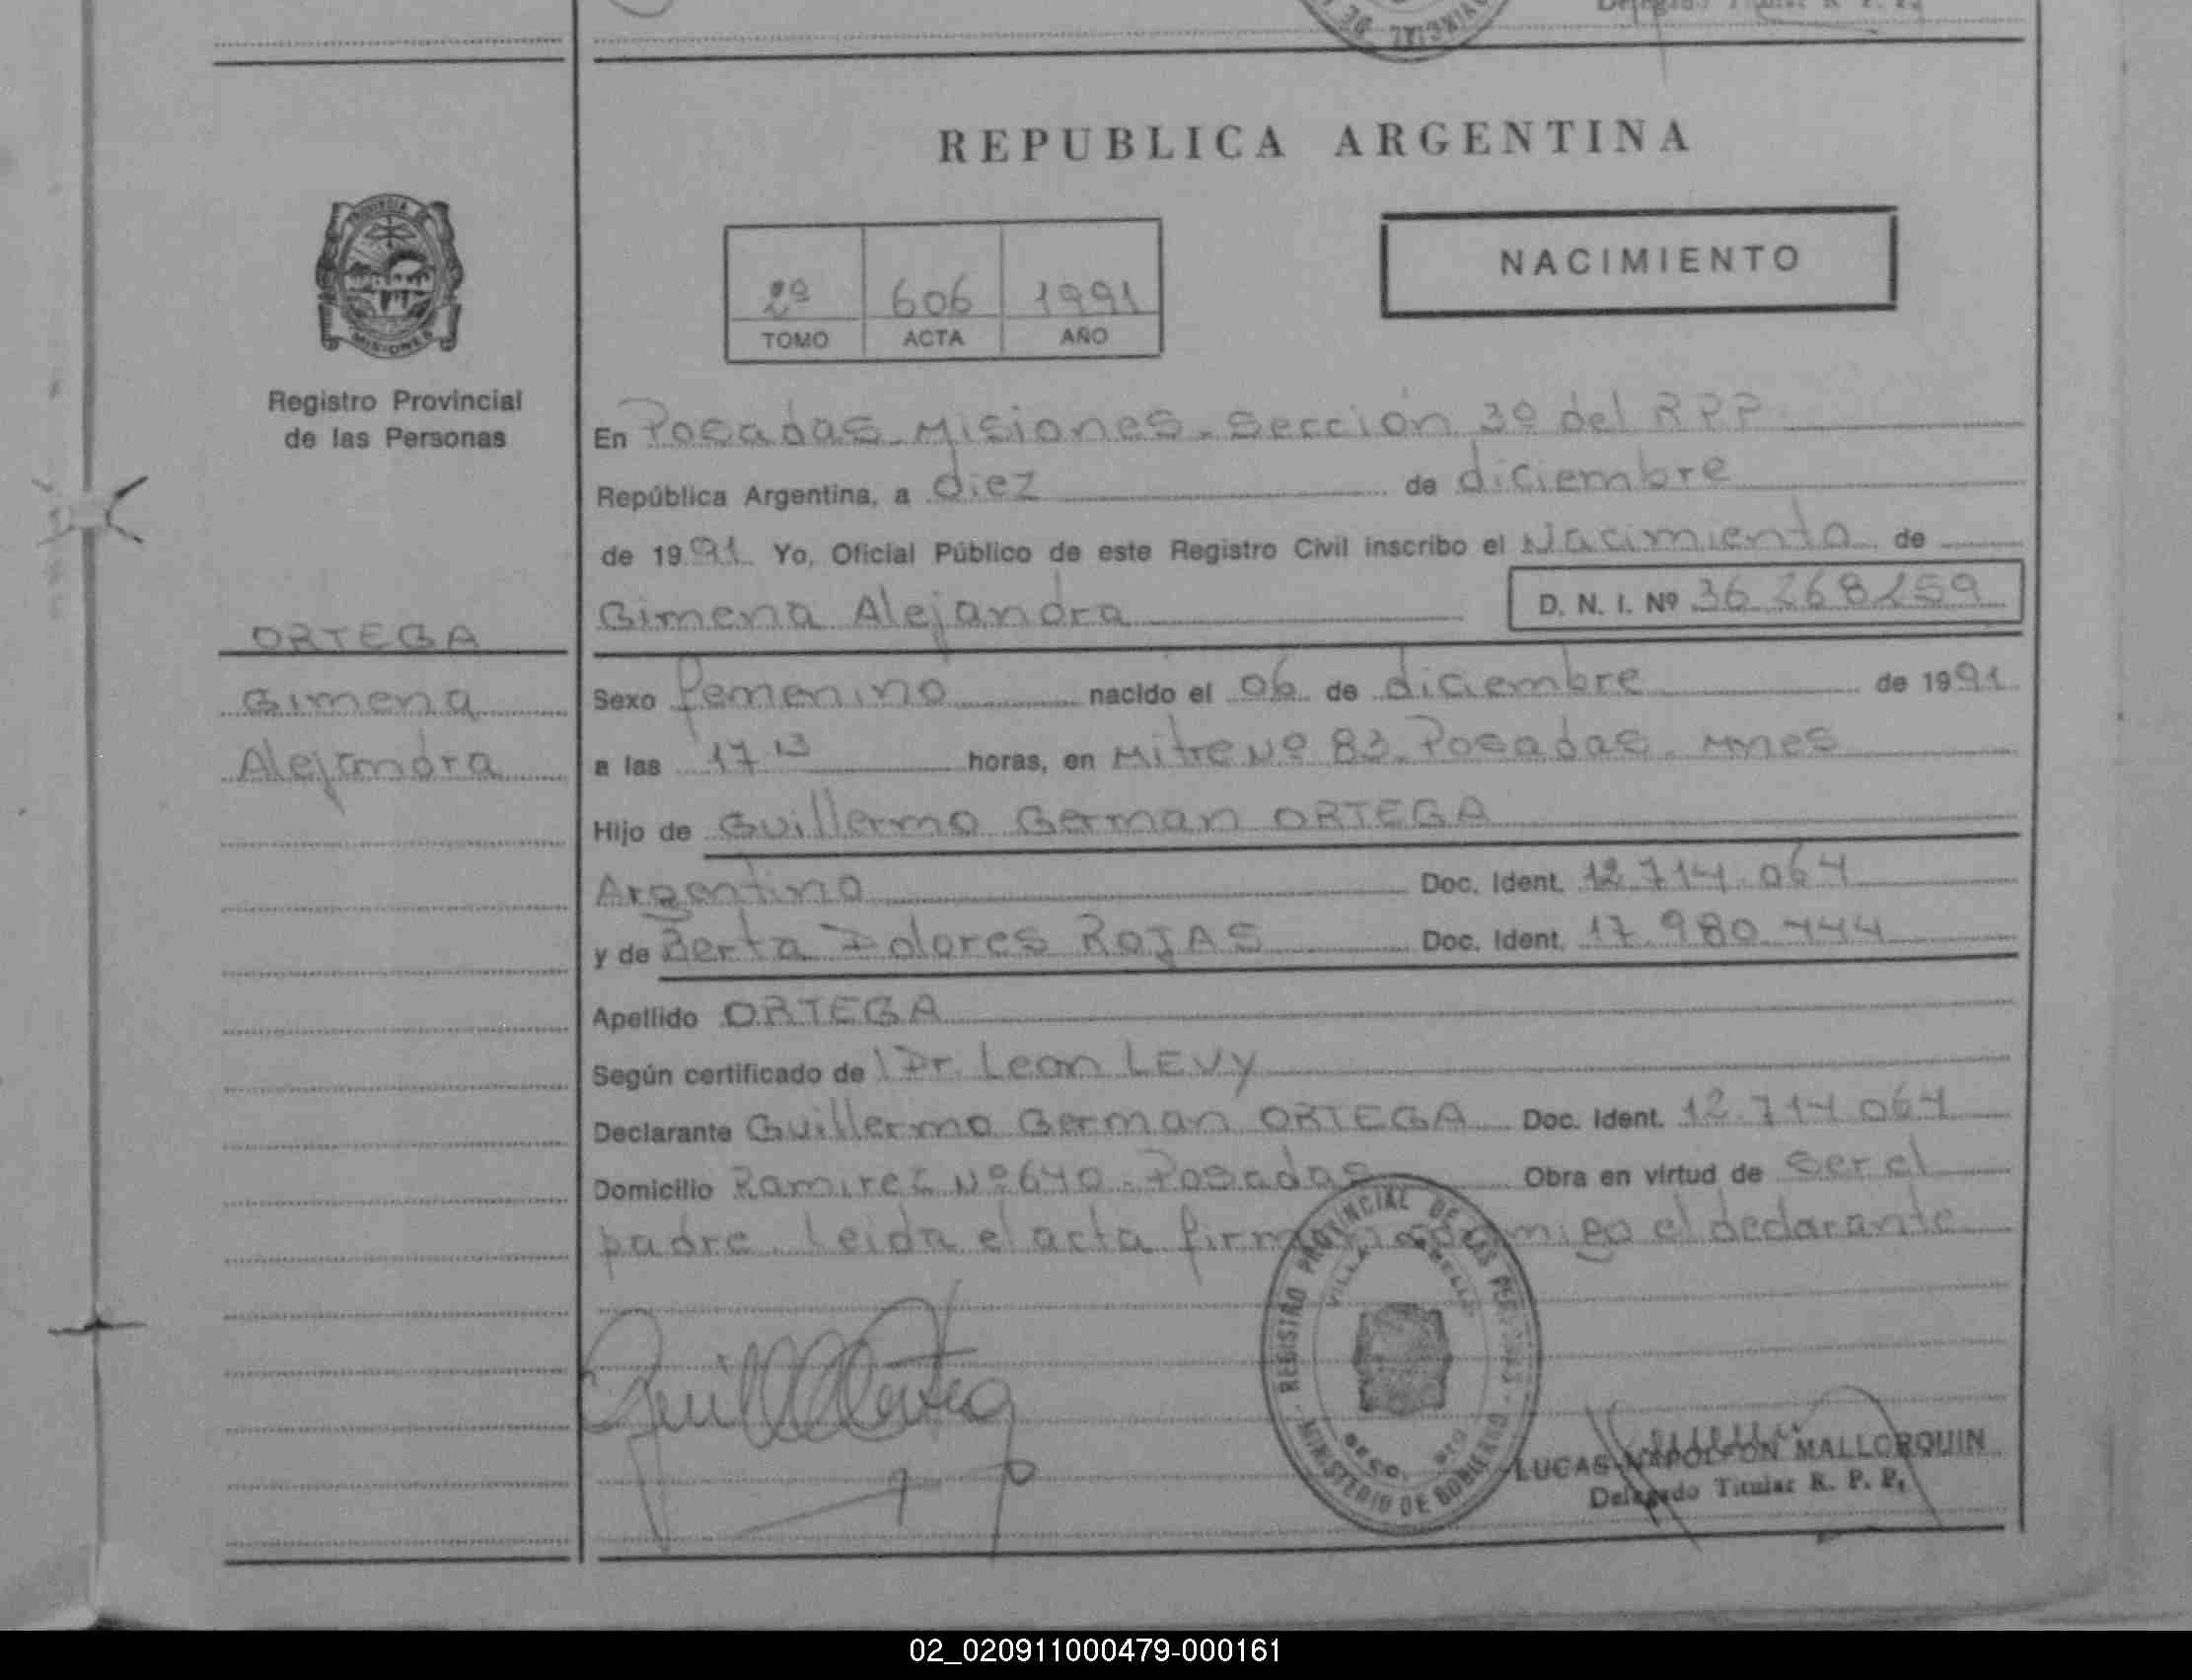 REPUBLICA ARGENTINA
PROVINCIA DE
MISIONES
Registro Provincial
de las Personas
NACIMIENTO
2º 606 1991
TOMO ACTA AÑO
En Posadas Misiones. Sección 3º del RPP
República Argentina, a diez de diciembre
de 1991 Yo, Oficial Público de este Registro Civil inscribo el Nacimiento de
Gimena Alejandra D. N. I. Nº 36 268259
ORTEGA
Gimena
Alejandra
Sexo femenino nacido el 06 de diciembre de 1991
a las 17 13 horas, en Mitre Nº 83. Posadas. Mnes
Hijo de Guillermo German ORTEGA
Argentino Doc. Ident. 12.714.064
y de Berta Dolores ROJAS Doc. Ident. 17.980.444
Apellido ORTEGA
Según certificado de Dr. Leon LEVY
Declarante Guillermo German ORTEGA Doc. Ident. 12.714.064
Domicilio Ramirez Nº 640. Posadas Obra en virtud de ser el
padre. Leida el acta firma conmigo el declarante
REGISTRO PROVINCIAL DE LAS PERSONAS
VILLA
MINISTERIO DE GOBIERNO
LUCAS NAPOLEON MALLORQUIN
Delegado Titular R. P. P.
02_020911000479-000161